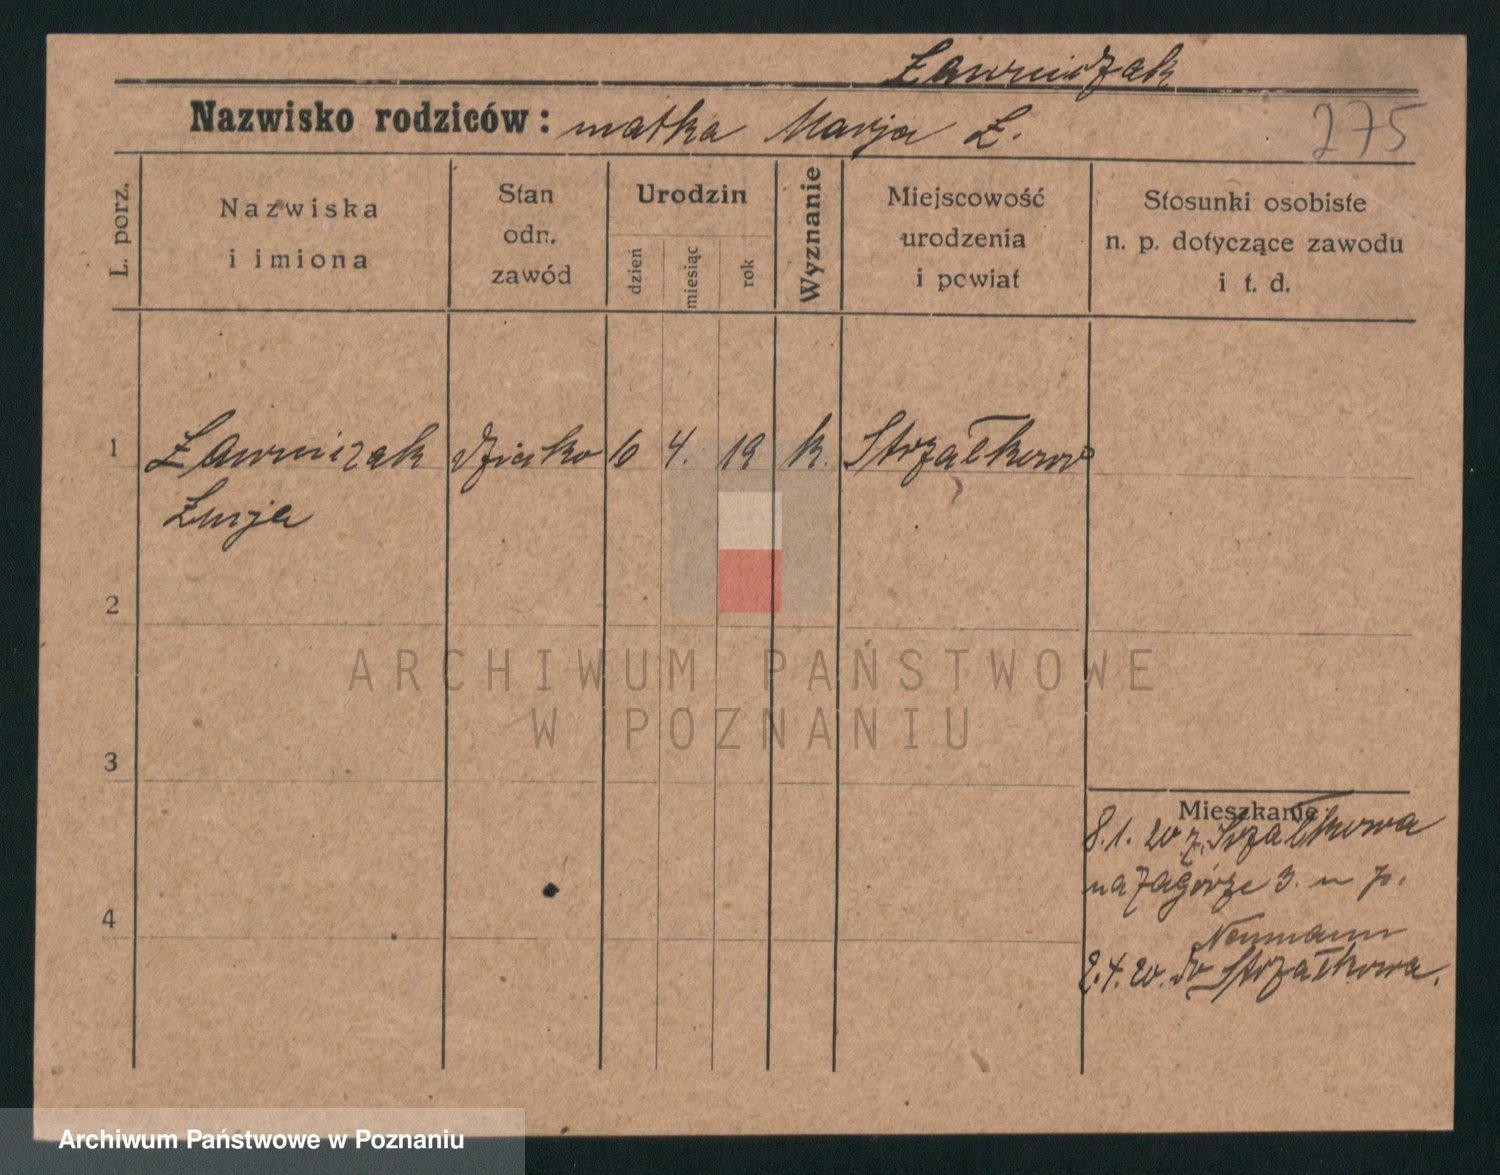 Ławniczak
Nazwisko rodziców : matka Marja Ł.
275
L. porz.
Nazwiska
i imiona
Stan
odn.
zawód
Urodzin
dzień
miesiąc
rok
Wyznanie
Miejscowość
urodzenia
i powiat
Stosunki osobiste
n. p. dotyczące zawodu
i t. d.
1 Ławniczak dziecko 6 4. 19 k. Strzałkowo
Łucja
2
3
4
Mieszkanie
8.1.20 z Strzałkowa
na Zagórze 3. u p.
Neumann
2.4.20. do Strzałkowa.
ARCHIWUM PAŃSTWOWE
W POZNANIU
Archiwum Państwowe w Poznaniu